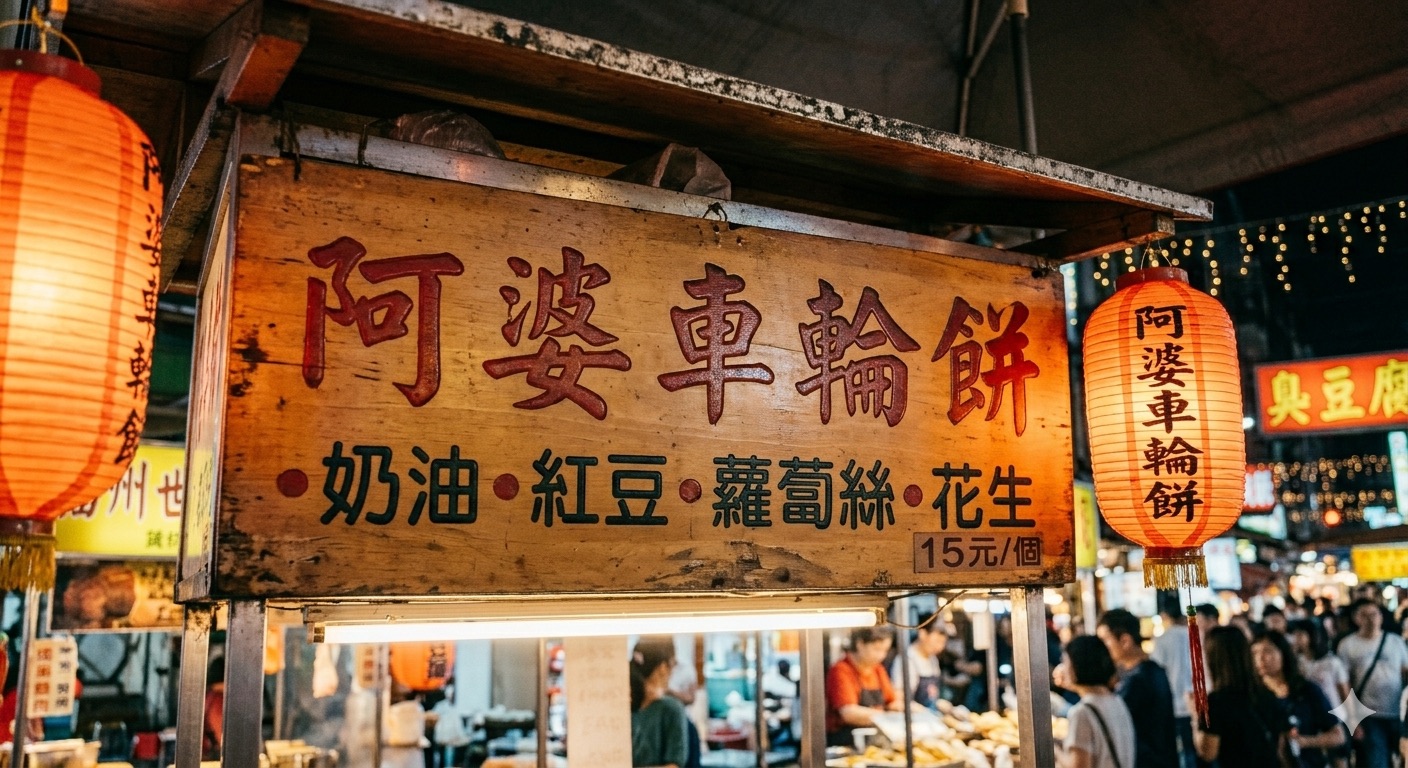 阿婆車輪餅
•奶油•紅豆•蘿蔔絲•花生
15元/個
阿婆車輪餅
阿婆車輪餅
臭豆腐
州世